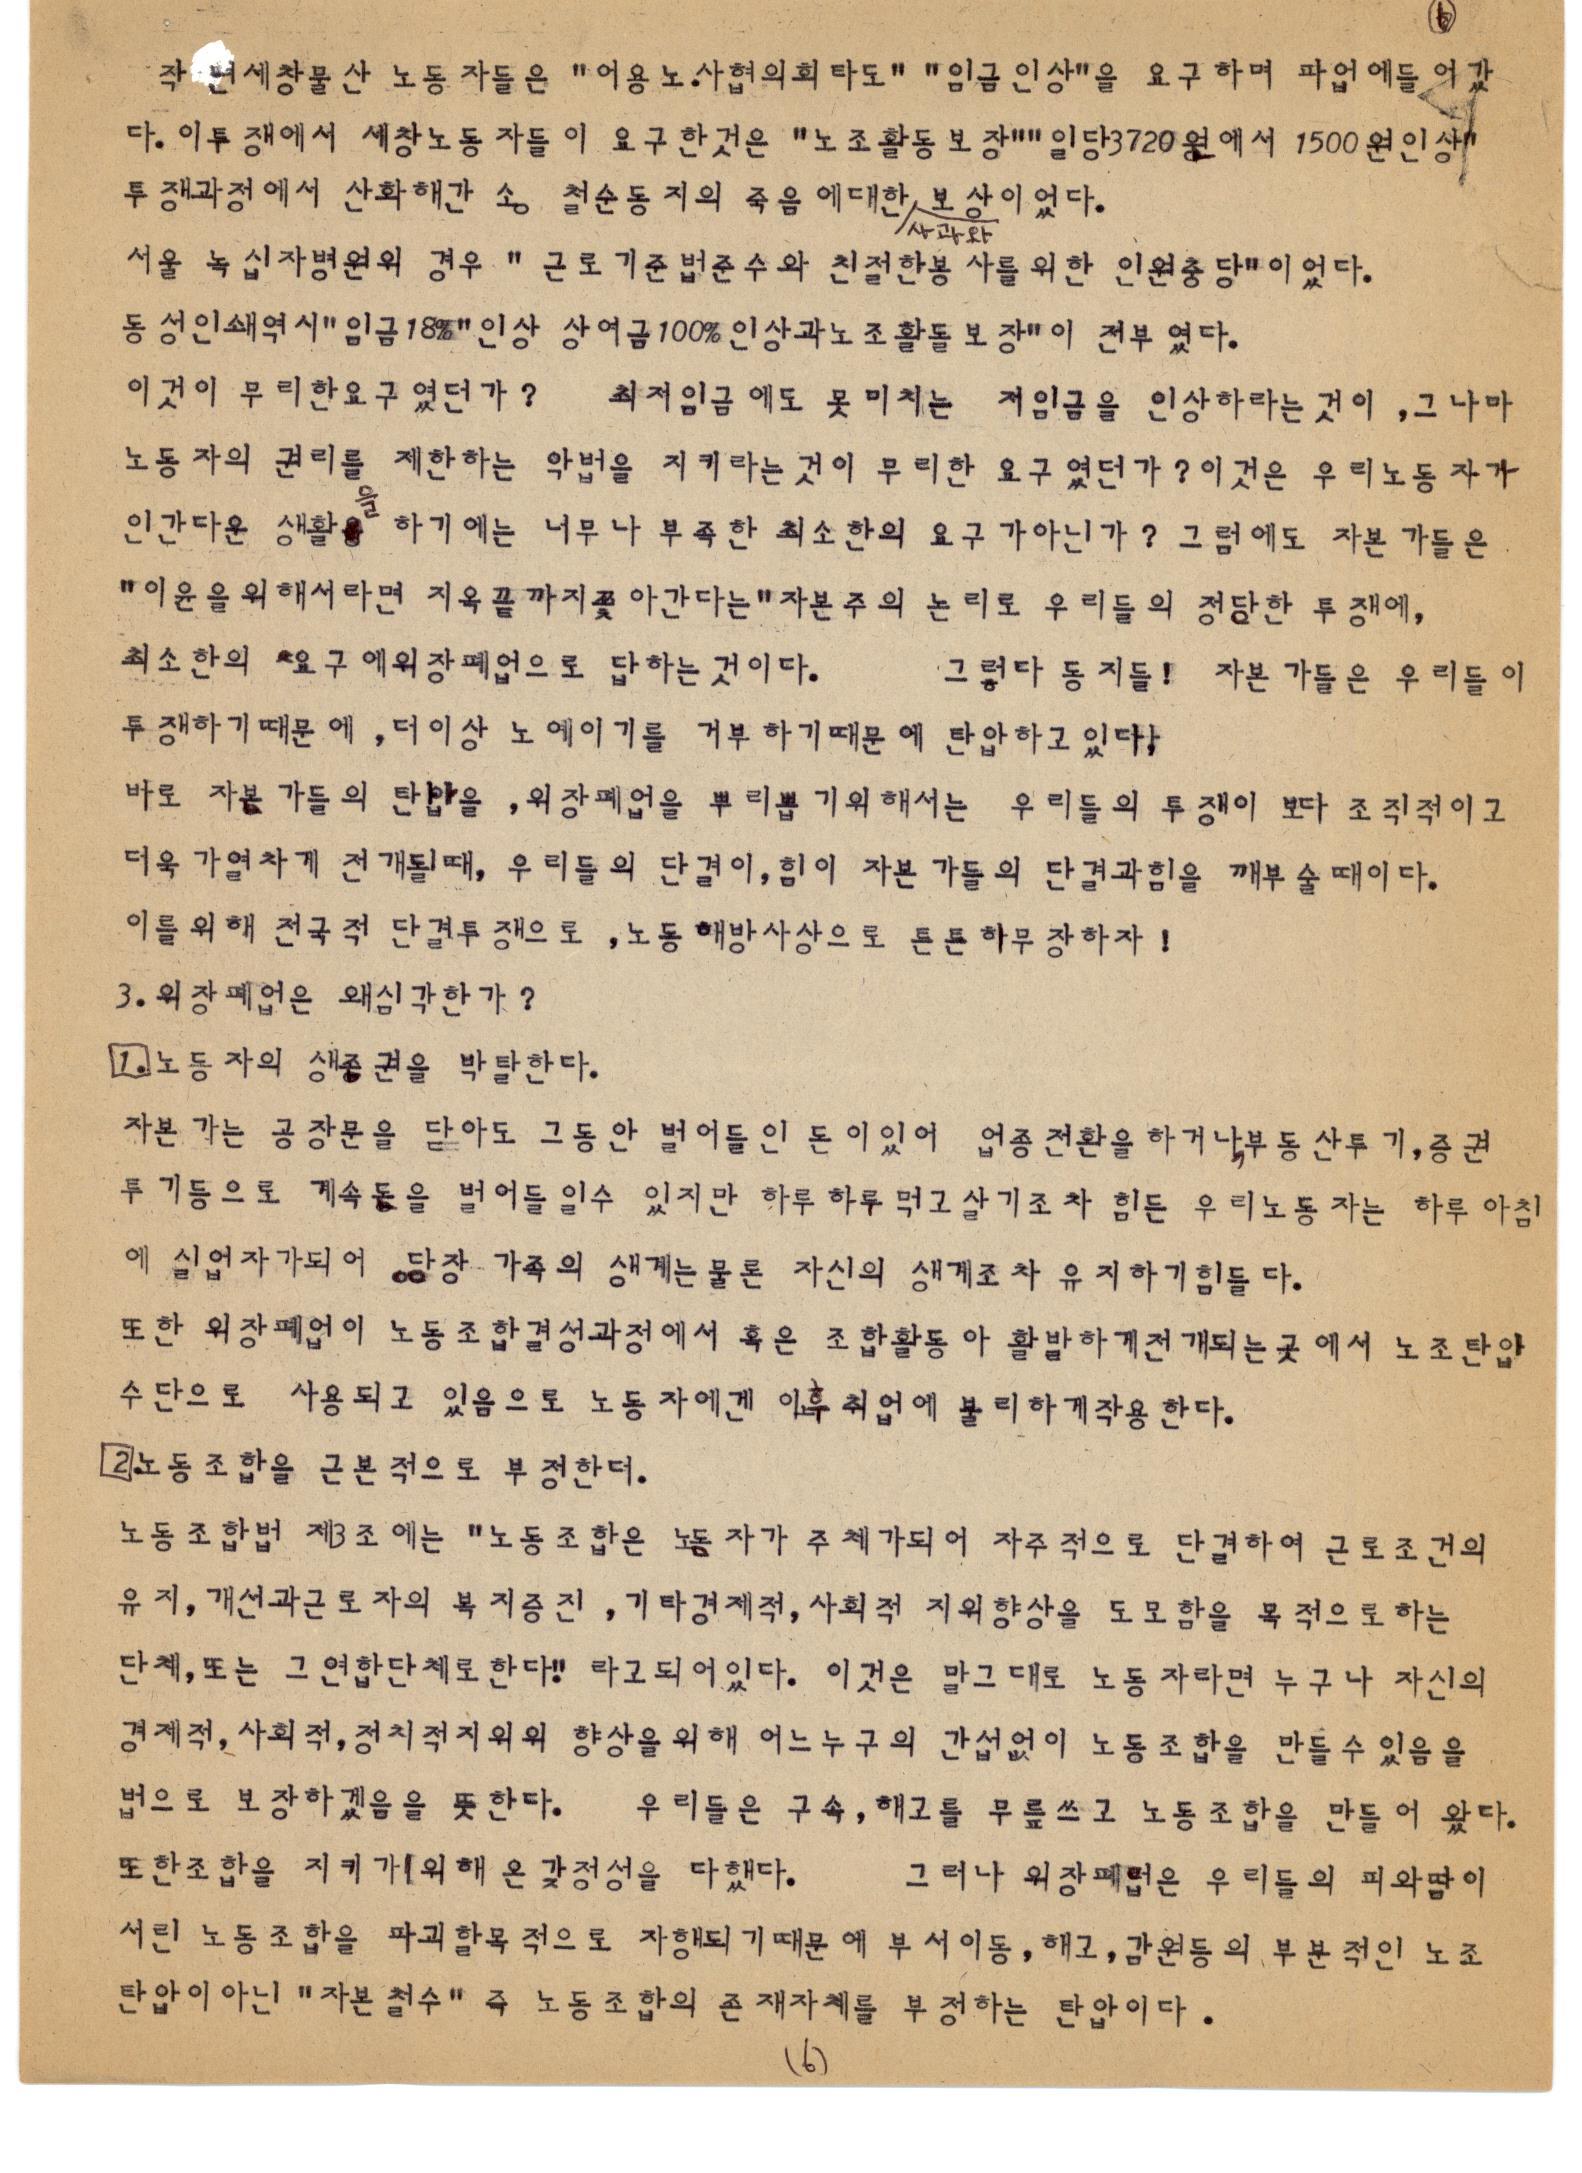 6
작년세창물산 노동자들은 "어용노.사협의회타도" "임금인상"을 요구하며 파업에들어갔
다. 이투쟁에서 세창노동자들이 요구한것은 "노조활동보장""일당3720원에서 1500원인상"
투쟁과정에서 산화해간 송 철순동지의 죽음에대한 보상이었다.
사과와
서울 녹십자병원위 경우 " 근로기준법준수와 친절한봉사를위한 인원충당"이었다.
동성인쇄역시"임금18%"인상 상여금100%인상과노조활돌보장"이 전부였다.
이것이 무리한요구였던가? 최저임금에도 못미치는 저임금을 인상하라는것이 ,그나마
노동자의 권리를 제한하는 악법을 지키라는것이 무리한 요구였던가?이것은 우리노동자가
을
인간다운 생활 하기에는 너무나 부족한 최소한의 요구가아닌가? 그럼에도 자본가들은
"이윤을위해서라면 지옥끝까지쫓아간다는"자본주의 논리로 우리들의 정당한 투쟁에,
최소한의 요구에위장폐업으로 답하는것이다. 그렇다 동지들! 자본가들은 우리들이
투쟁하기때문에 ,더이상 노예이기를 거부하기때문에 탄압하고있다,
바로 자본가들의 탄압을 ,위장폐업을 뿌리뽑기위해서는 우리들의 투쟁이 보다 조직적이고
더욱가열차게 전개될때, 우리들의 단결이,힘이 자본가들의 단결과힘을 깨부술때이다.
이를위해 전국적 단결투쟁으로 ,노동해방사상으로 튼튼하무장하자!
3.위장폐업은 왜심각한가?
1.노동자의 생존권을 박탈한다.
자본가는 공장문을 닫아도 그동안 벌어들인 돈이있어 업종전환을하거나,부동산투기,증권
투기등으로 계속돈을 벌어들일수 있지만 하루하루먹고살기조차 힘든 우리노동자는 하루아침
에 실업자가되어 당장 가족의 생계는물론 자신의 생계조차 유지하기힘들다.
또한 위장폐업이 노동조합결성과정에서 혹은 조합활동아 활발하게전개되는곳에서 노조탄압
수단으로 사용되고 있음으로 노동자에겐 이후 취업에 불리하게작용한다.
2.노동조합을 근본적으로 부정한더.
노동조합법 제3조에는 "노동조합은 노동자가 주체가되어 자주적으로 단결하여 근로조건의
유지,개선과근로자의 복지증진 ,기타경제적,사회적 지위향상을 도모함을 목적으로하는
단체,또는 그연합단체로한다!! 라고되어있다. 이것은 말그대로 노동자라면 누구나 자신의
경제적,사회적,정치적지위위 향상을위해 어느누구의 간섭없이 노동조합을 만들수있음을
법으로 보장하겠음을 뜻한다. 우리들은 구속,해고를 무릎쓰고 노동조합을 만들어 왔다.
또한조합을 지키기위해온갖정성을 다했다. 그러나 위장폐업은 우리들의 피와땀이
서린 노동조합을 파괴할목적으로 자행되기때문에 부서이동,해고,감원등의 부분적인 노조
탄압이아닌 "자본철수" 즉 노동조합의 존재자체를 부정하는 탄압이다.
(6)